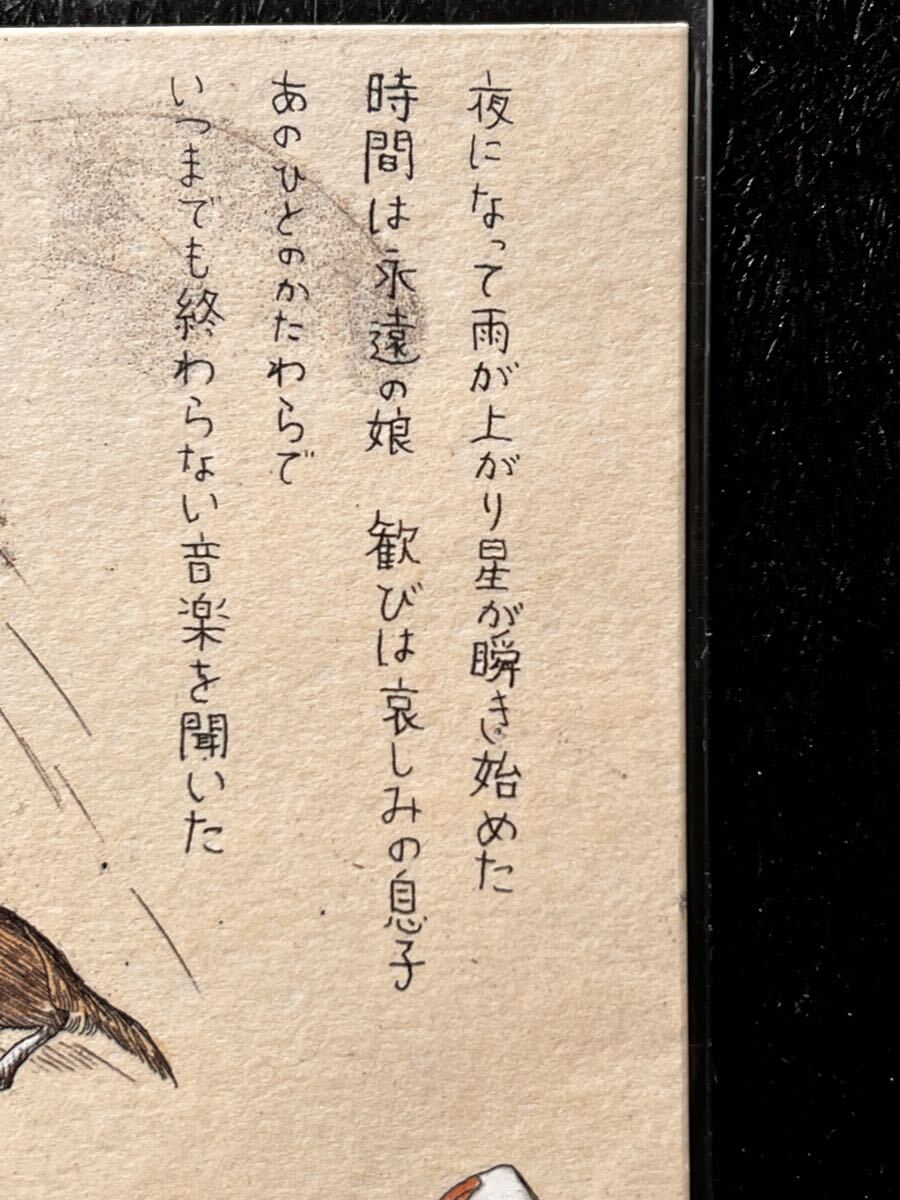 夜になって雨が上がり星が瞬き始めた
時間は永遠の娘　歓びは哀しみの息子
あのひとのかたわらで
いつまでも終わらない音楽を聞いた